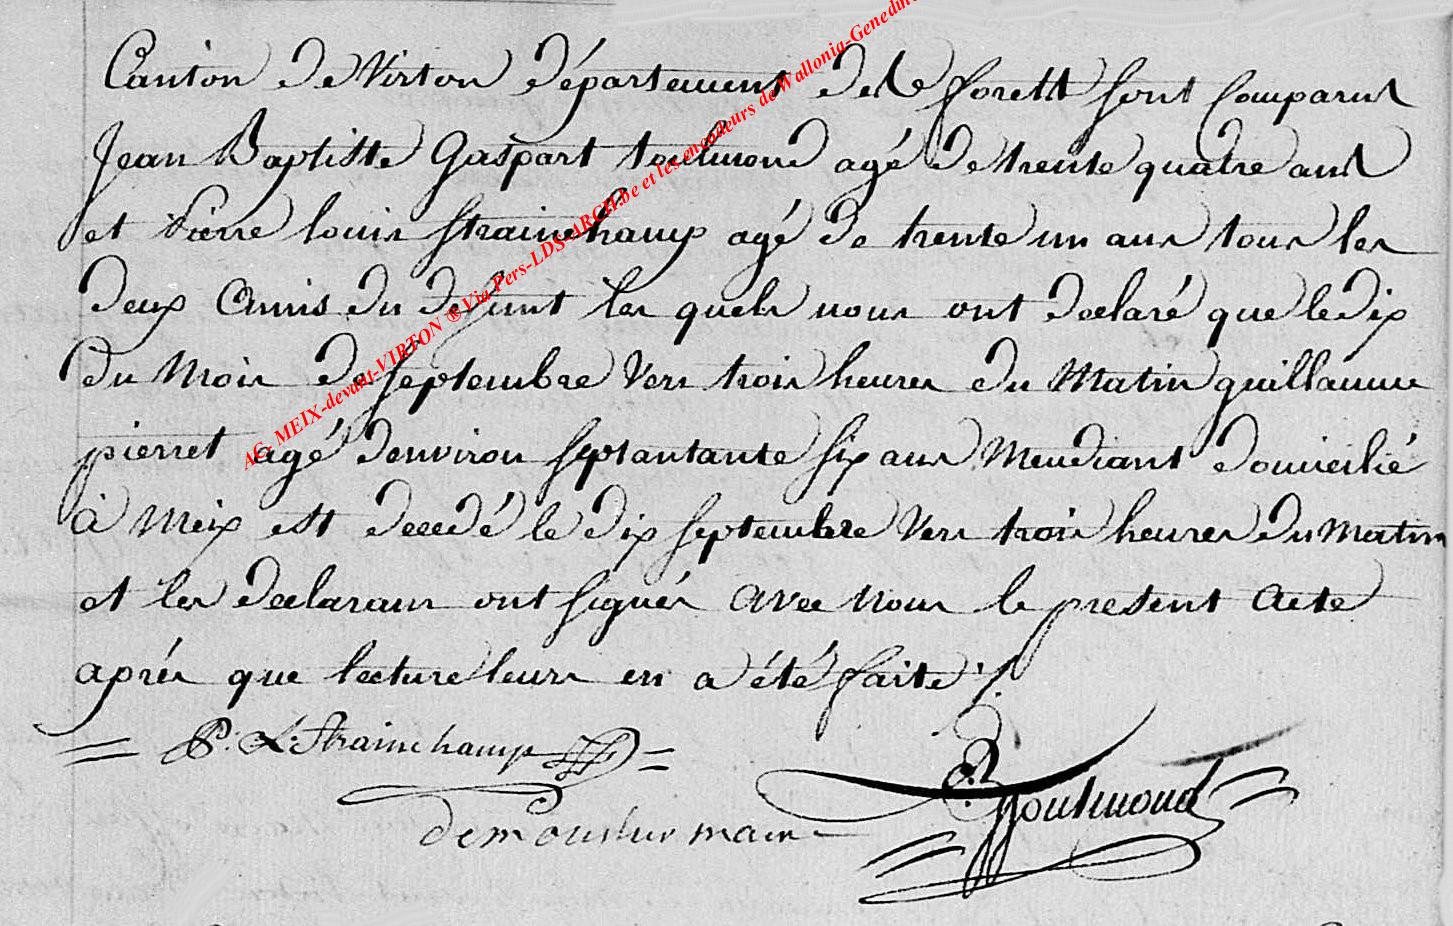 Canton de Virton département de forett sont Comparus
Jean Baptiste Gaspart toulmond agé de trente quatre ans
et Pierre louis strainchamp agé de trente un ans tous les
deux Amis du defunt les quels nous ont declaré que le dix
du Mois de septembre Vers trois heures du Matin guillaume
pierret agé d'environ septantante six ans Mendiant domicilié
à Meix est decedé le dix septembre Vers trois heures du Matin
et les declarans ont signés avec nous le present Acte
aprés que lecture leurs en a été faite ./.
P. L. Strainchamp
Toulmond
maire
AG MEIX-devant-VIRTON ® Via Pers-LDS-ARCH.be et les encodeurs de Wallonia-Genedin